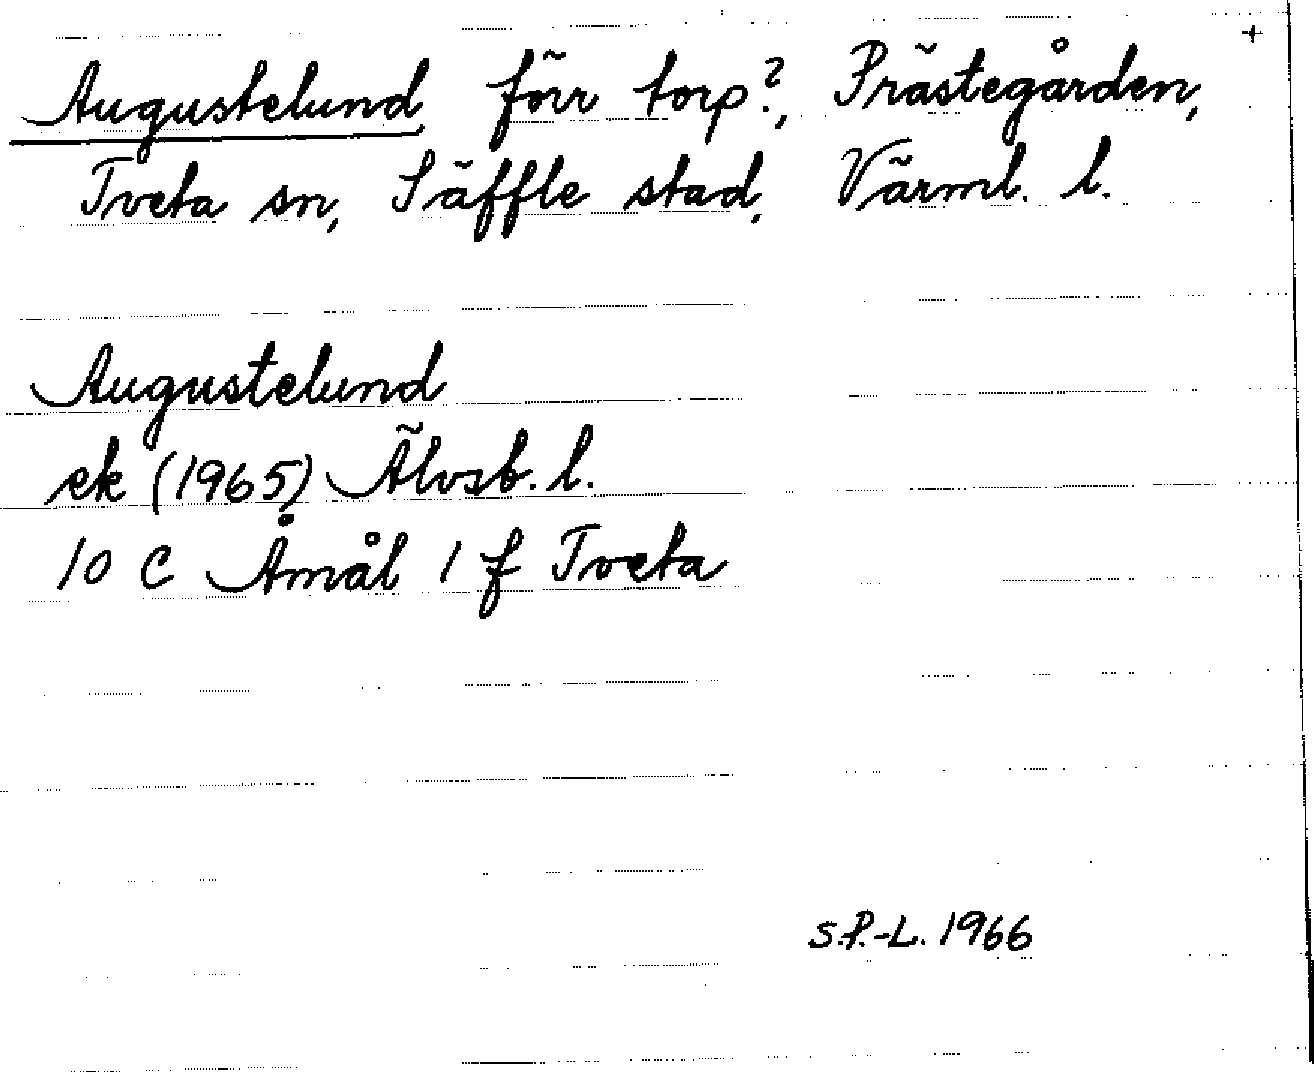 +
Augustelund förr torp?, Prästegården,
Tveta sn, Säffle stad, Värml. l.
Augustelund
ek (1965) Älvsb. l.
10 C Åmål 1 f Tveta
S.P.-L. 1966